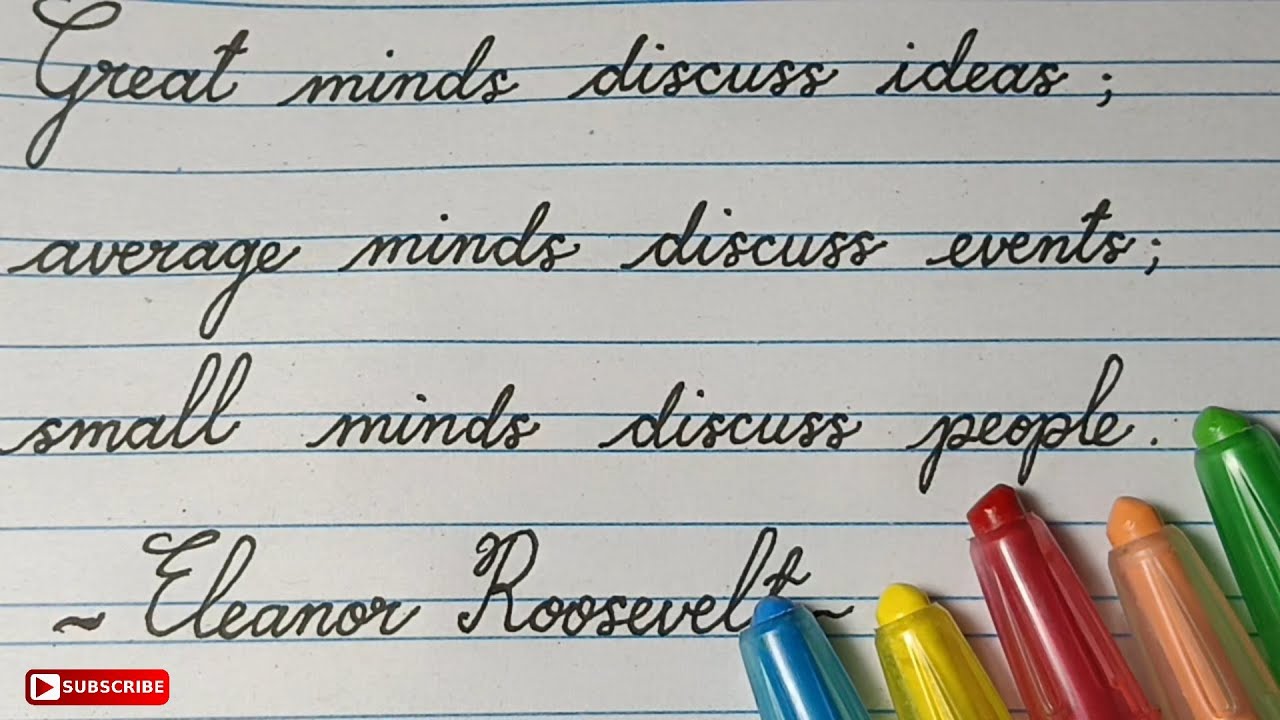 Great minds discuss ideas;
average minds discuss events;
small minds discuss people.
~ Eleanor Roosevelt ~
SUBSCRIBE